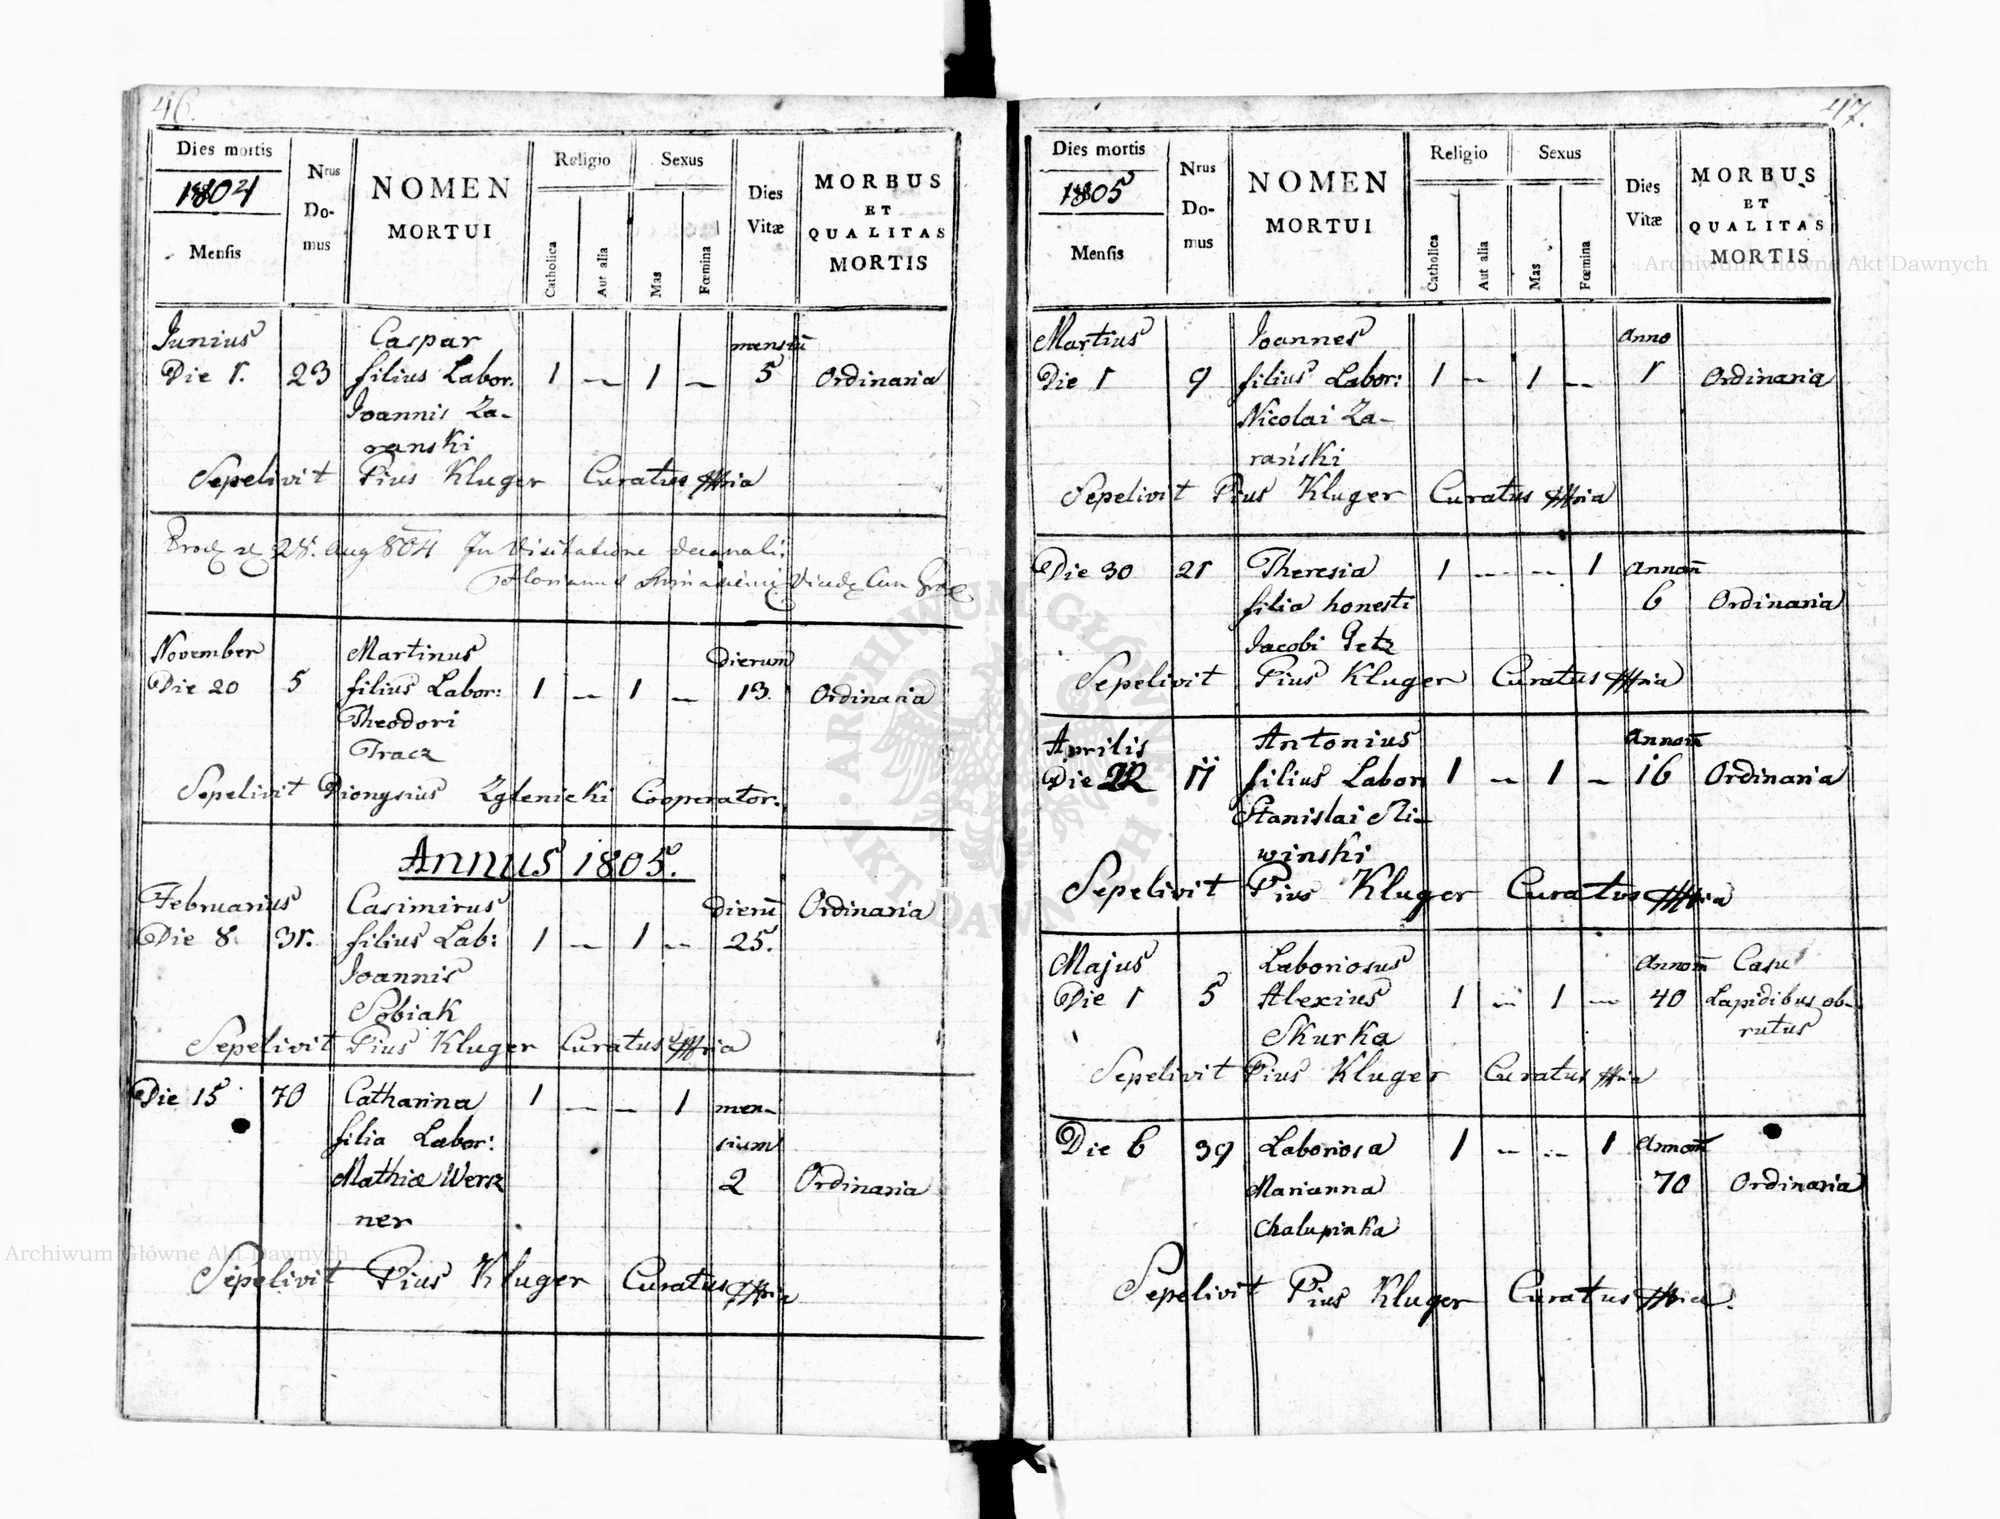 46.
Dies mortis
1804
Mensis
Nrus Do- mus
NOMEN
MORTUI
Religio
Catholica
Aut alia
Sexus
Mas
Fœmina
Dies
Vitæ
MORBUS
ET
QUALITAS
MORTIS
Junius Caspar mensiū
Die 1. 23 filius Labor. 1 — 1 — 5 Ordinaria
Joannis Za-
ranski
Sepelivit Pius Kluger Curatus
28. Aug 804 In Visitatione decanali
Florianus
November Martinus Dierum
Die 20 5 filius Labor: 1 — 1 — 13. Ordinaria
Theodori
Tracz
Sepelivit Dionysius Zglenicki Cooperator.
Annus 1805.
Februarius Casimirus Dierū Ordinaria
Die 8. 31. filius Lab: 1 — 1 — 25.
Joannis
Sobiak
Sepelivit Pius Kluger Curatus
Die 15 70 Catharina 1 — — 1 men-
filia Labor: sium
Mathiæ Wersz 2 Ordinaria
ner
Sepelivit Pius Kluger Curatus
47.
Dies mortis
1805
Mensis
Nrus Do- mus
NOMEN
MORTUI
Religio
Catholica
Aut alia
Sexus
Mas
Fœmina
Dies
Vitæ
MORBUS
ET
QUALITAS
MORTIS
Martius Joannes Anno
Die 1 9 filius Labor: 1 — 1 — 1 Ordinaria
Nicolai Za-
rański
Sepelivit Pius Kluger Curatus
Die 30 21 Theresia 1 — — 1 Annom̄
filia honesti 6 Ordinaria
Jacobi Petz
Sepelivit Pius Kluger Curatus
Aprilis Antonius Annom̄
Die 22 11 filius Labor 1 — 1 — 16 Ordinaria
Stanislai Mi-
winski
Sepelivit Pius Kluger Curatus
Majus Laboriosus Annom̄ Casu
Die 1 5 Alexius 1 — 1 — 40 Lapidibus ob-
Skurka rutus
Sepelivit Pius Kluger Curatus
Die 6 39 Laboriosa 1 — — 1 Annom̄
Marianna 70 Ordinaria
Chalupinka
Sepelivit Pius Kluger Curatus
Archiwum Główne Akt Dawnych
Archiwum Główne Akt Dawnych
ARCHIWUM GŁÓWNE AKT DAWNYCH